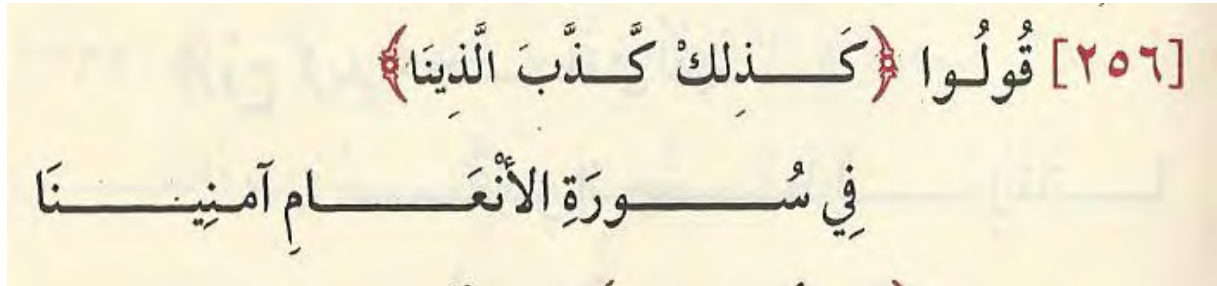 [٢٥٦] قُولُوا ﴿كَذلِكْ كَّذَّبَ الَّذِينَا﴾
فِي سُورَةِ الأَنْعَامِ آمنِينَا